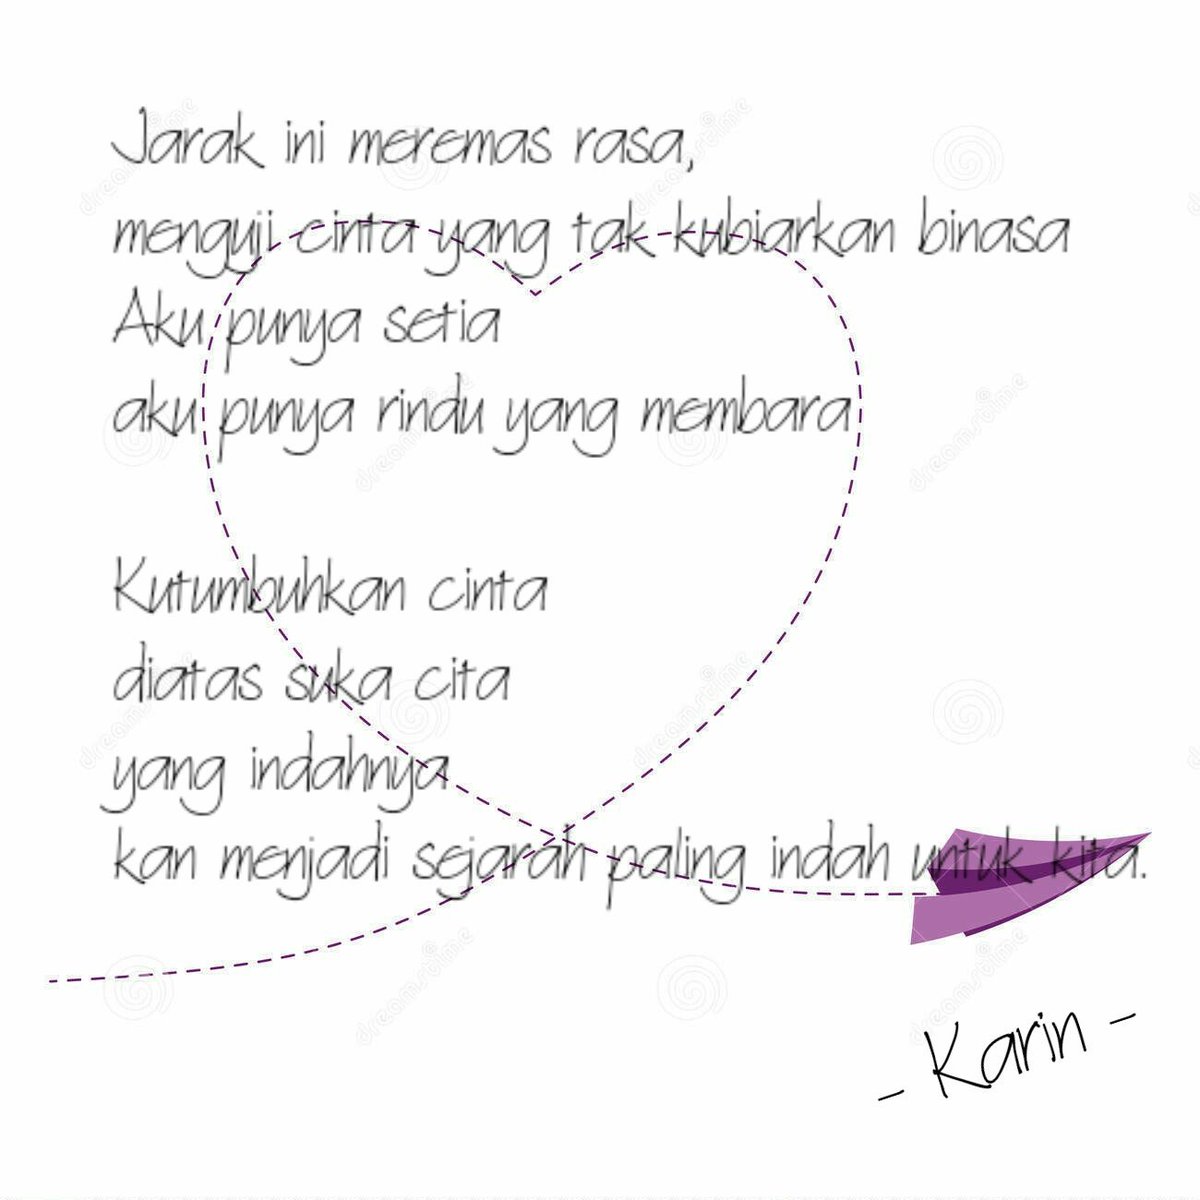 Jarak ini meremas rasa,
menguji cinta yang tak kubiarkan binasa
Aku punya setia
aku punya rindu yang membara
Kutumbuhkan cinta
diatas suka cita
yang indahnya
kan menjadi sejarah paling indah untuk kita.
- Karin -
dreamstime